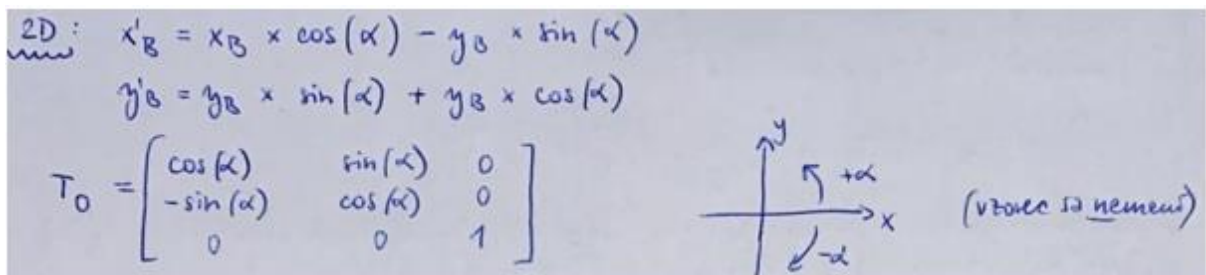 2D: x'B = xB × cos(α) − yB × sin(α)
y'B = yB × sin(α) + yB × cos(α)
TO = [ cos(α) sin(α) 0
−sin(α) cos(α) 0
0 0 1 ]
y
+α
x
−α
(vzorec sa nemení)